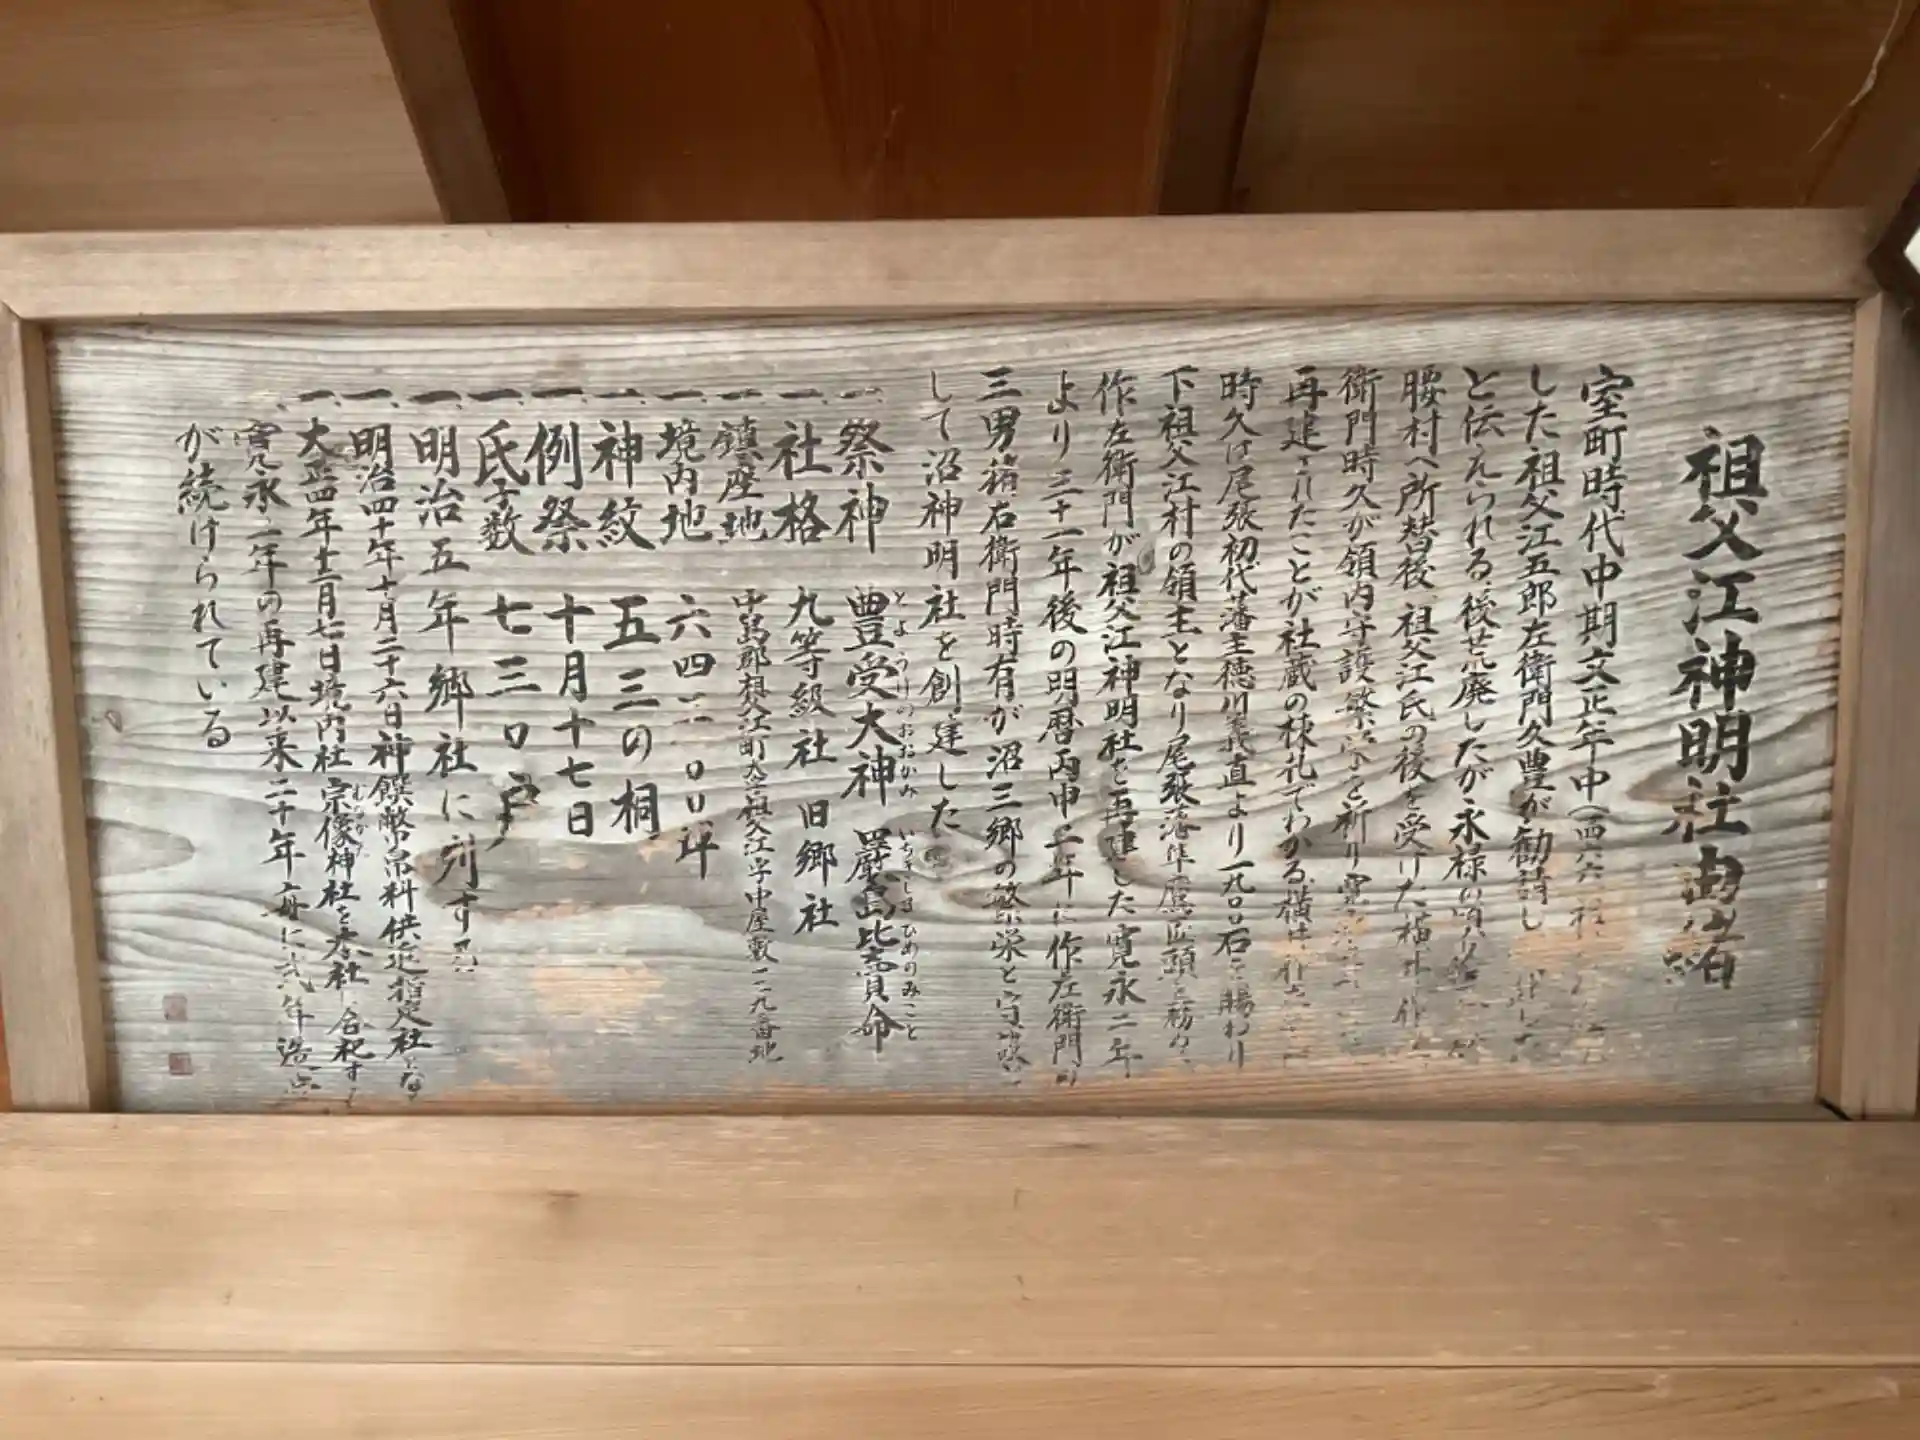 祖父江神明社由緒
室町時代中期文正年中(一四六六
した祖父江五郎左衛門久豊が勧請し
と伝えられる、後荒廃したが永禄の頃
腰村へ所替後、祖父江氏の後を受けた
衛門時久が領内守護繁栄を祈り寛
再建されたことが社蔵の棟札でわかる、横井
時久は尾張初代藩主徳川義直より一九〇〇石を賜わり
下祖父江村の領主となり尾張藩隼鷹匠頭を務め、
作左衛門が祖父江神明社を再建した寛永二年
より三十一年後の明暦丙申二年に作左衛門の
三男 右衛門時有が沼三郷の繁栄と守護
して沼神明社を創建した
一、祭神 豊受大神 とようけのおおかみ 市杵島比売命 いちきしまひめのみこと
一、社格 九等級社 旧郷社
一、鎮座地 中島郡祖父江町大字祖父江字中屋敷一二九番地
一、境内地 六四二、〇〇坪
一、神紋 五三の桐
一、例祭 十月十七日
一、氏子数 七三〇戸
一、明治五年郷社に列す
一、明治四十年十月二十六日神饌幣帛料供進指定社となる
一、大正四年十二月七日境内社 宗像神社を本社に合祀す
寛永二年の再建以来二十年毎に式年造
が続けられている